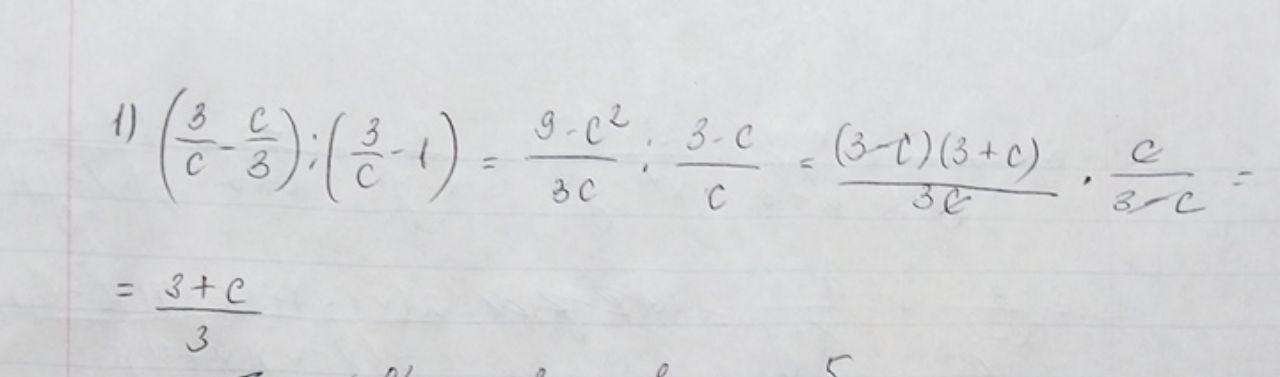 1) (3/c - c/3) : (3/c - 1) = (9 - c²)/(3c) : (3 - c)/c = ((3 - c)(3 + c))/(3c) · c/(3 - c) =
= (3 + c)/3